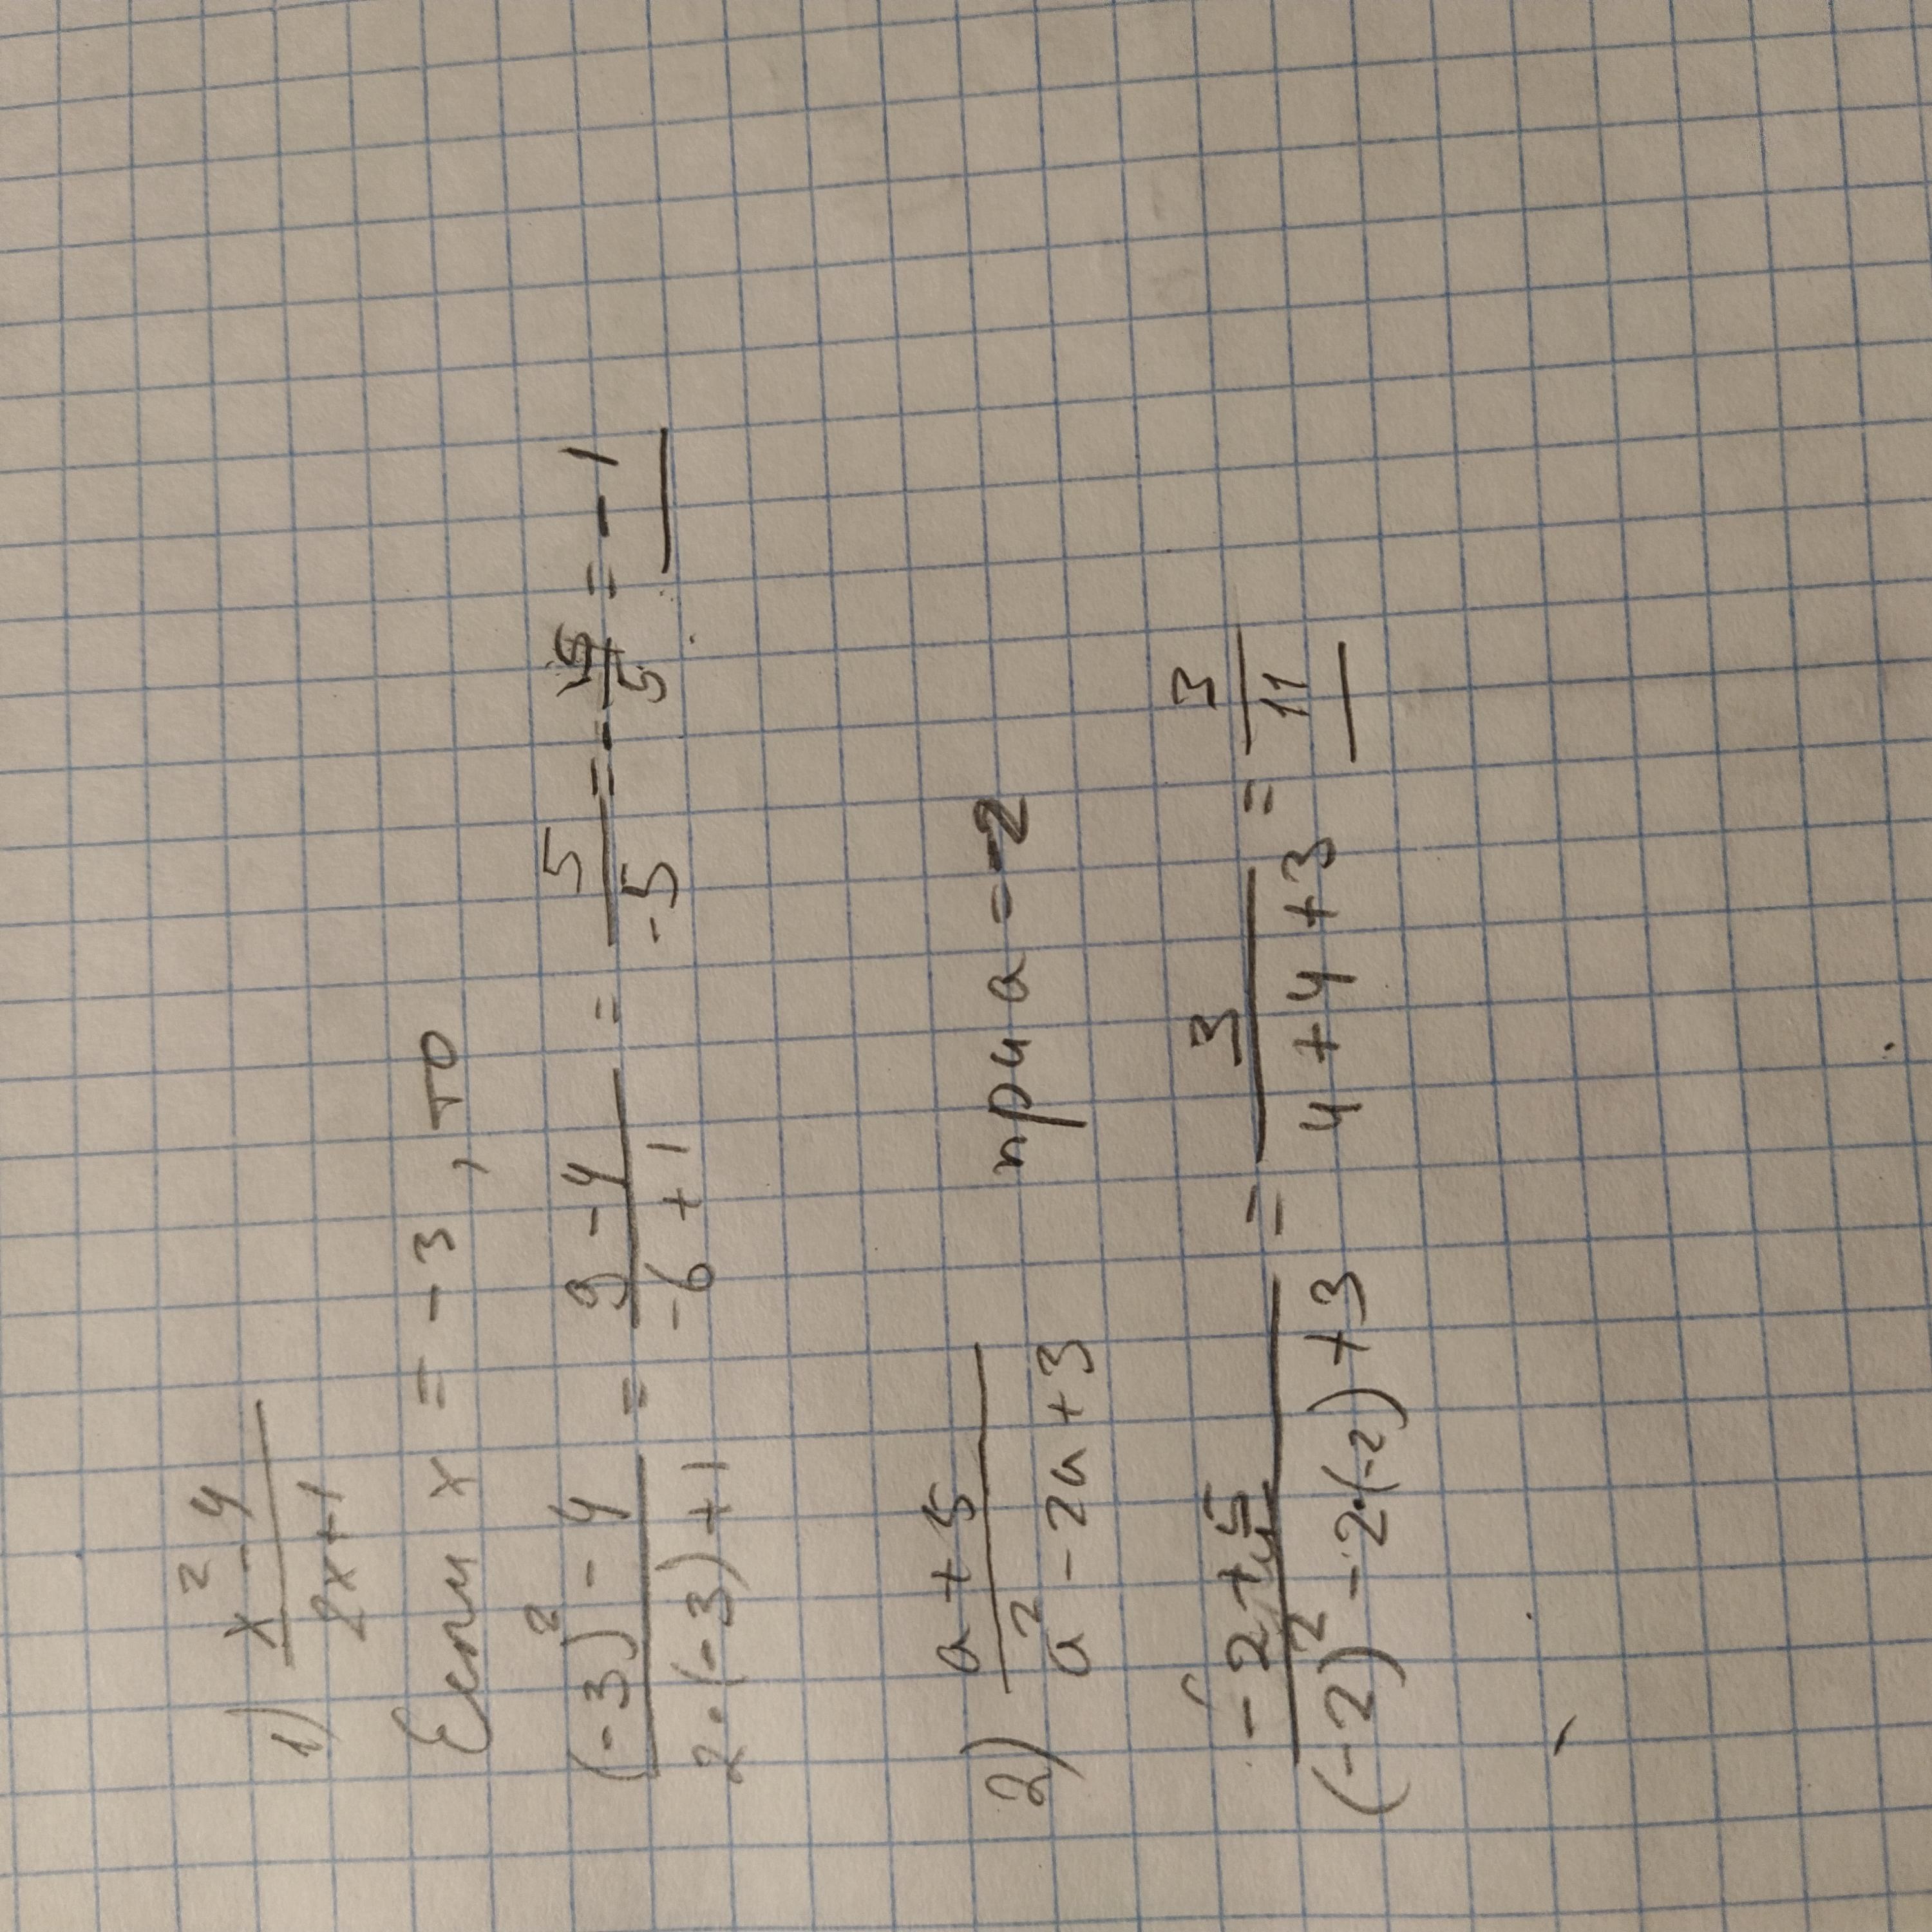 1) (x² - 4)/(2x+1)
Если x = -3, то
((-3)² - 4)/(2·(-3)+1) = (9-4)/(-6+1) = 5/(-5) = -5/5 = -1
2) (a+5)/(a² - 2a+3) при a=-2
(-2+5)/((-2)² - 2·(-2)+3) = 3/(4+4+3) = 3/11